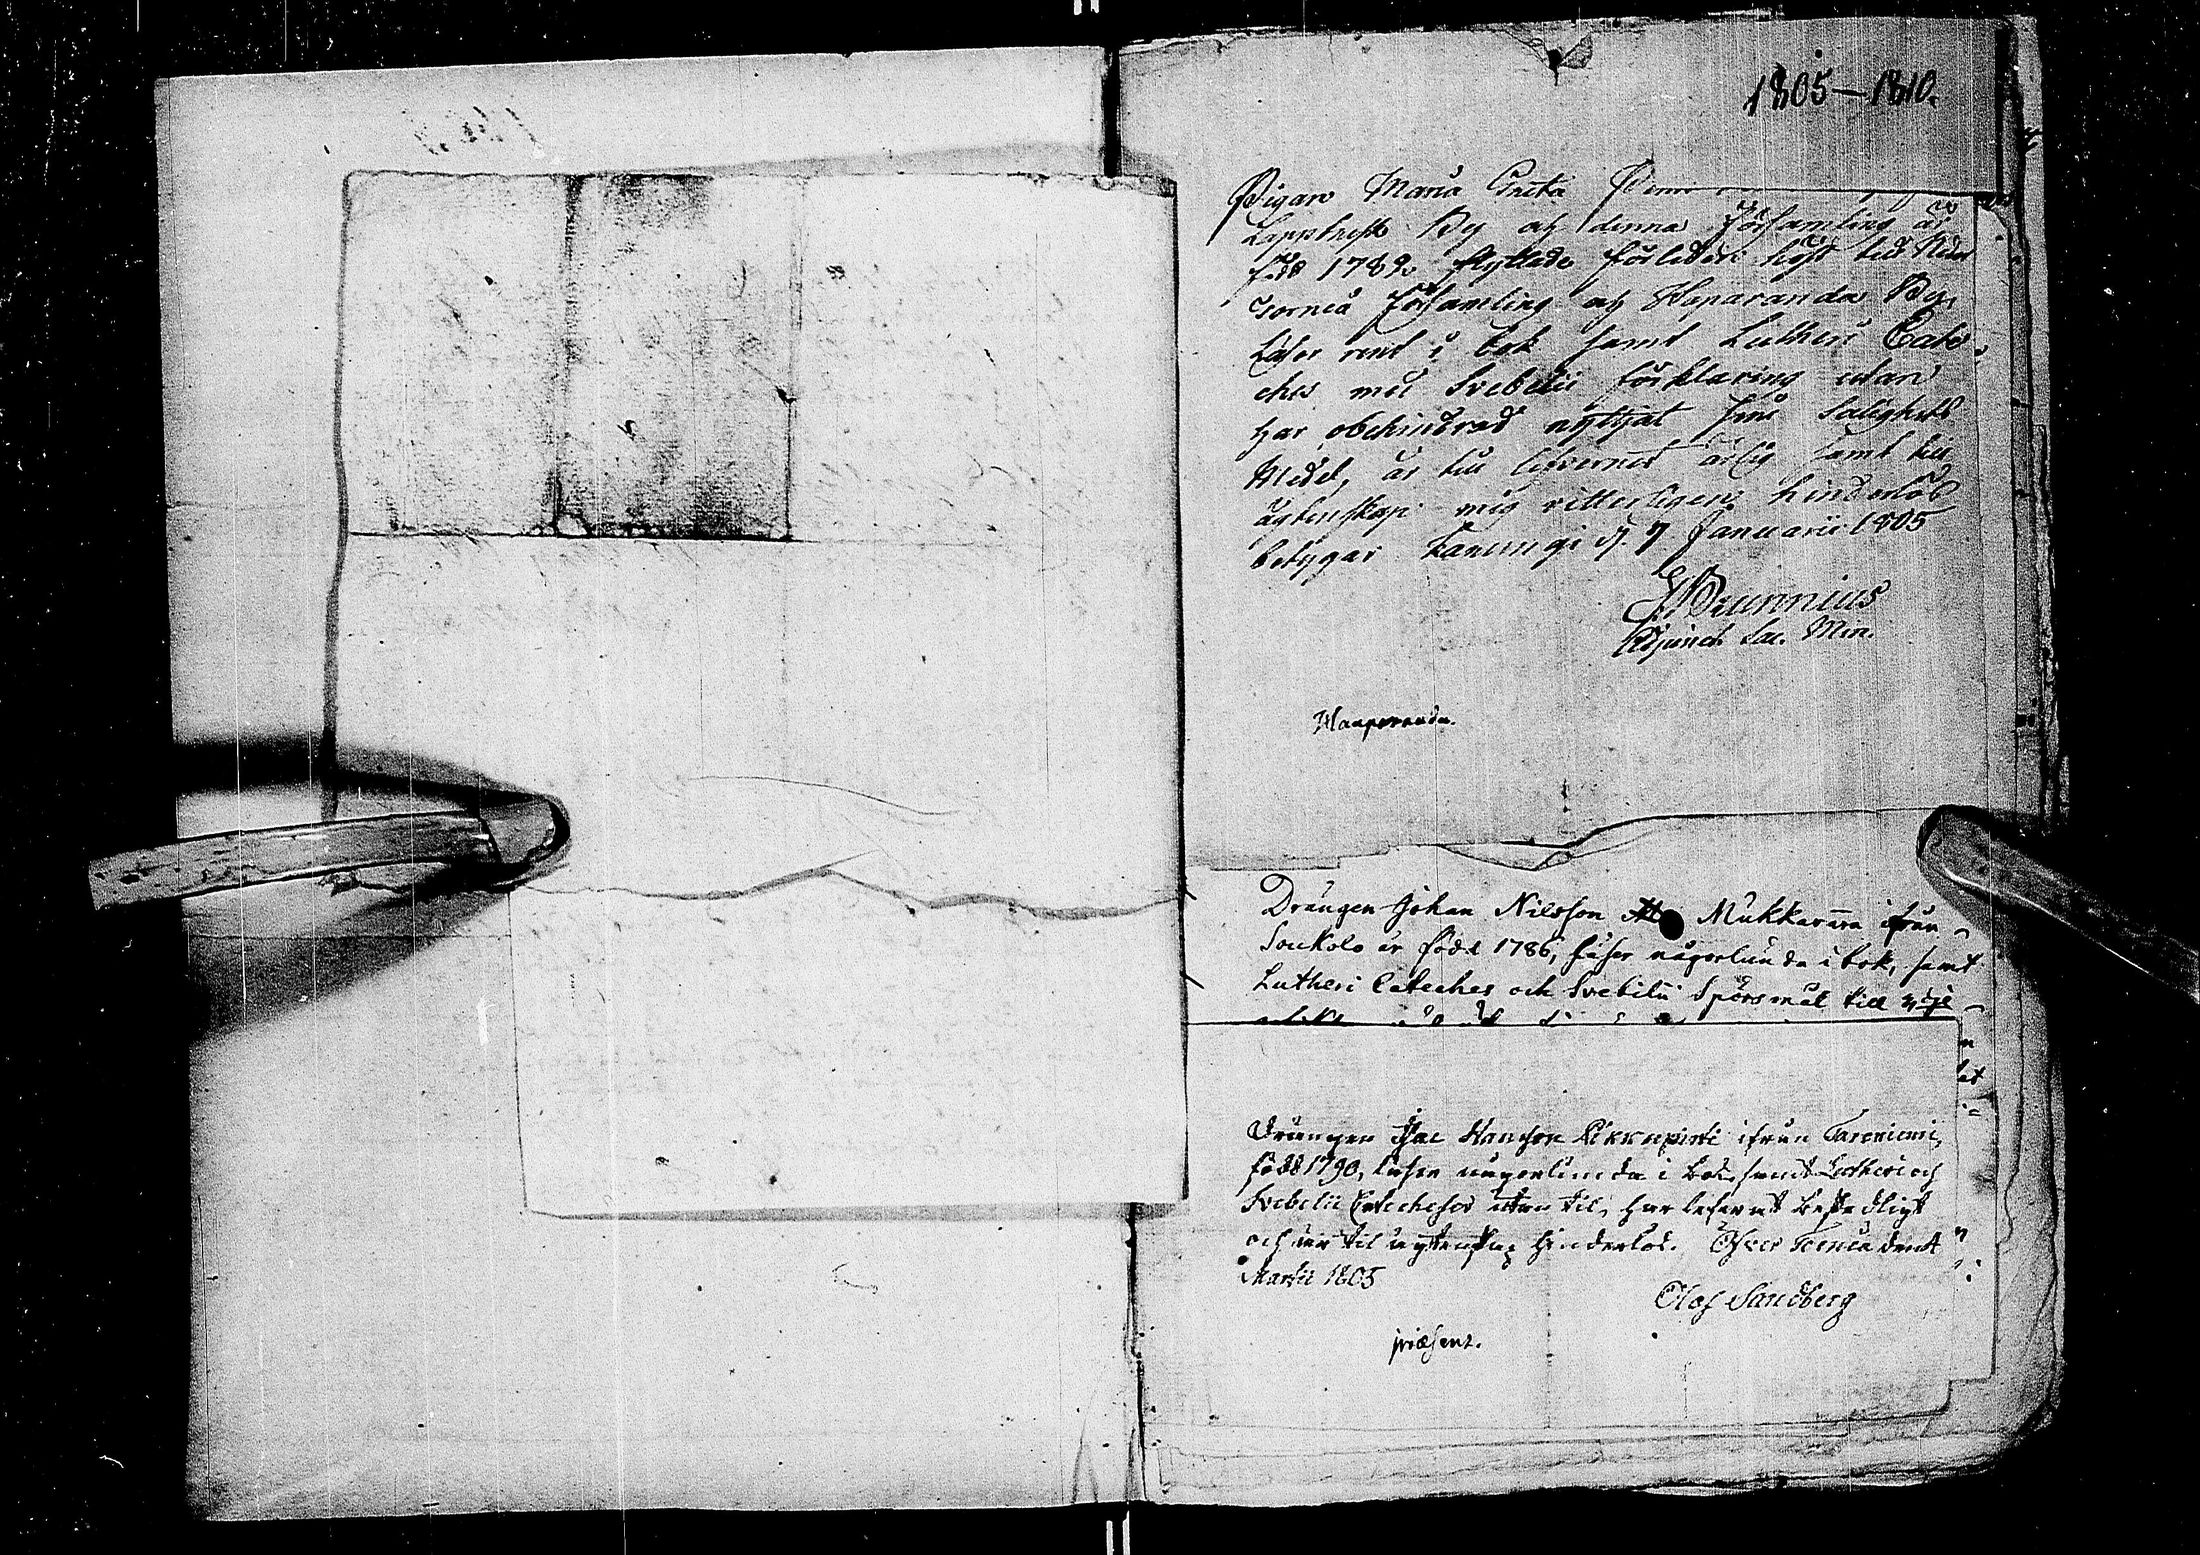 1805–1810.
Pigan Maria Greta
Lappträsk By och denna Församling är
född 1782 flyttade förleden höst till Neder
Torneå Församling och Haparanda By,
Läser rent i bok samt Lutheri Cate-
ches med Svebelii förklaring utan
har obehindrad nyttjat sine Salighets
Medel, är till lefvernet ärlig samt till
ägtenskap mig vitterligen hinderlös
betygar Karungi d. 7 Januarii 1805
Brunnius
Adjunct. Sac. Min.
Haaparanda.
Drängen Johan Nilsson Mukkavaara ifrån
Soukolo är född 1786, läser någorlunda i bok, samt
Lutheri Cateches och Svebilii Spörsmål till
Drängen Isac Hansson ifrån
född 1790, läser någorlunda i bok samt Lutheri och
Svebelii Catecheser utan til, har lefvernet beskedligt
och är til ägtenskap hinderlös. Öfver Torneå den
Martii 1805
Olof Sandberg
præsent.